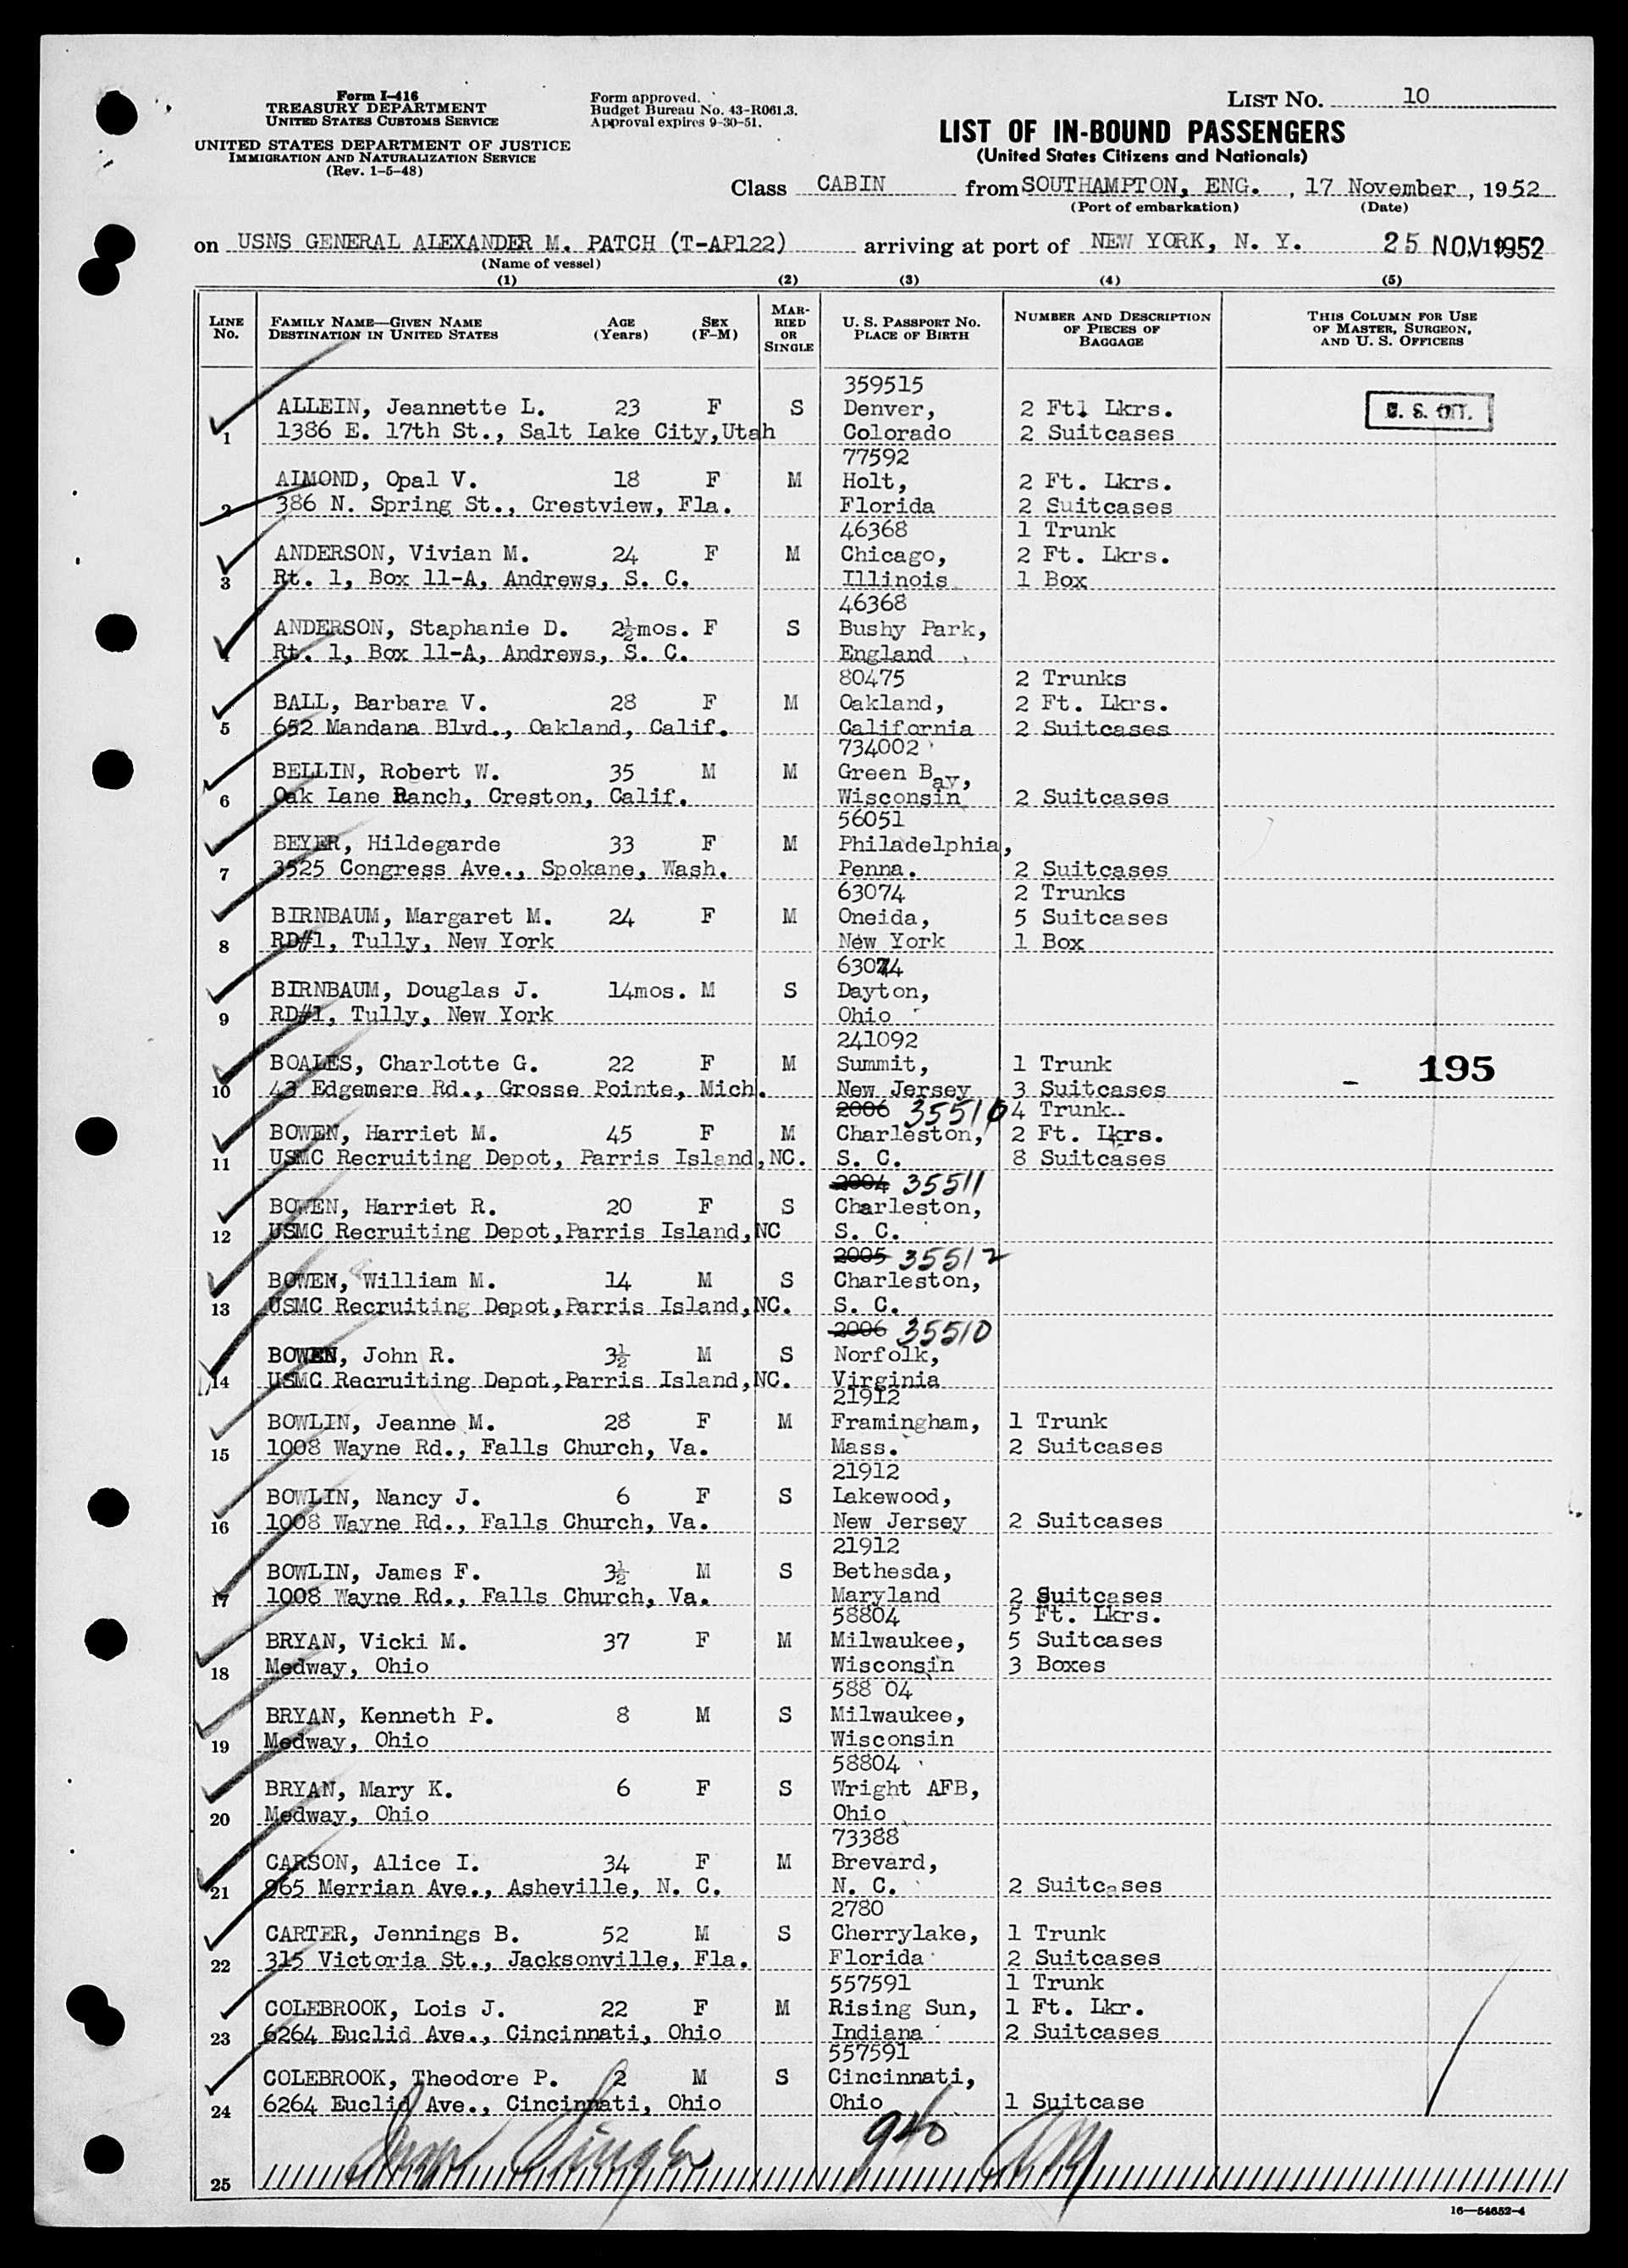 Form I-416
TREASURY DEPARTMENT
UNITED STATES CUSTOMS SERVICE
UNITED STATES DEPARTMENT OF JUSTICE
IMMIGRATION AND NATURALIZATION SERVICE
(Rev. 1-5-48)
Form approved.
Budget Bureau No. 43-R061.3.
Approval expires 9-30-51.
LIST NO. 10
LIST OF IN-BOUND PASSENGERS
(United States Citizens and Nationals)
Class CABIN from SOUTHAMPTON, ENG., 17 November, 1952
(Port of embarkation) (Date)
on USNS GENERAL ALEXANDER M. PATCH (T-AP122) arriving at port of NEW YORK, N. Y. 25 NOV 1952
(Name of vessel)
(1) (2) (3) (4) (5)
LINE NO. FAMILY NAME—GIVEN NAME DESTINATION IN UNITED STATES AGE (Years) SEX (F-M) MARRIED OR SINGLE U. S. PASSPORT NO. PLACE OF BIRTH NUMBER AND DESCRIPTION OF PIECES OF BAGGAGE THIS COLUMN FOR USE OF MASTER, SURGEON, AND U. S. OFFICERS
359515
ALLEIN, Jeannette L. 23 F S Denver, 2 Ftl Lkrs. U. S. CIT.
1 1386 E. 17th St., Salt Lake City, Utah Colorado 2 Suitcases
77592
AIMOND, Opal V. 18 F M Holt, 2 Ft. Lkrs.
2 386 N. Spring St., Crestview, Fla. Florida 2 Suitcases
46368 1 Trunk
ANDERSON, Vivian M. 24 F M Chicago, 2 Ft. Lkrs.
3 Rt. 1, Box 11-A, Andrews, S. C. Illinois 1 Box
46368
ANDERSON, Staphanie D. 2½mos. F S Bushy Park,
4 Rt. 1, Box 11-A, Andrews, S. C. England
80475 2 Trunks
BALL, Barbara V. 28 F M Oakland, 2 Ft. Lkrs.
5 652 Mandana Blvd., Oakland, Calif. California 2 Suitcases
734002
BELLIN, Robert W. 35 M M Green Bay,
6 Oak Lane Ranch, Creston, Calif. Wisconsin 2 Suitcases
56051
BEYER, Hildegarde 33 F M Philadelphia,
7 3525 Congress Ave., Spokane, Wash. Penna. 2 Suitcases
63074 2 Trunks
BIRNBAUM, Margaret M. 24 F M Oneida, 5 Suitcases
8 RD#1, Tully, New York New York 1 Box
63074
BIRNBAUM, Douglas J. 14mos. M S Dayton,
9 RD#1, Tully, New York Ohio
241092
BOALES, Charlotte G. 22 F M Summit, 1 Trunk 195
10 43 Edgemere Rd., Grosse Pointe, Mich. New Jersey 3 Suitcases
2006 35510 4 Trunk
BOWEN, Harriet M. 45 F M Charleston, 2 Ft. Lkrs.
11 USMC Recruiting Depot, Parris Island, NC. S. C. 8 Suitcases
2004 35511
BOWEN, Harriet R. 20 F S Charleston,
12 USMC Recruiting Depot, Parris Island, NC S. C.
2005 35512
BOWEN, William M. 14 M S Charleston,
13 USMC Recruiting Depot, Parris Island, NC. S. C.
2006 35510
BOWEN, John R. 3½ M S Norfolk,
14 USMC Recruiting Depot, Parris Island, NC. Virginia
21912
BOWLIN, Jeanne M. 28 F M Framingham, 1 Trunk
15 1008 Wayne Rd., Falls Church, Va. Mass. 2 Suitcases
21912
BOWLIN, Nancy J. 6 F S Lakewood,
16 1008 Wayne Rd., Falls Church, Va. New Jersey 2 Suitcases
21912
BOWLIN, James F. 3½ M S Bethesda,
17 1008 Wayne Rd., Falls Church, Va. Maryland 2 Suitcases
58804 5 Ft. Lkrs.
BRYAN, Vicki M. 37 F M Milwaukee, 5 Suitcases
18 Medway, Ohio Wisconsin 3 Boxes
588 04
BRYAN, Kenneth P. 8 M S Milwaukee,
19 Medway, Ohio Wisconsin
58804
BRYAN, Mary K. 6 F S Wright AFB,
20 Medway, Ohio Ohio
73388
CARSON, Alice I. 34 F M Brevard,
21 965 Merrian Ave., Asheville, N. C. N. C. 2 Suitcases
2780
CARTER, Jennings B. 52 M S Cherrylake, 1 Trunk
22 315 Victoria St., Jacksonville, Fla. Florida 2 Suitcases
557591 1 Trunk
COLEBROOK, Lois J. 22 F M Rising Sun, 1 Ft. Lkr.
23 6264 Euclid Ave., Cincinnati, Ohio Indiana 2 Suitcases
557591
COLEBROOK, Theodore P. 2 M S Cincinnati,
24 6264 Euclid Ave., Cincinnati, Ohio Ohio 1 Suitcase
25
16—54652-4